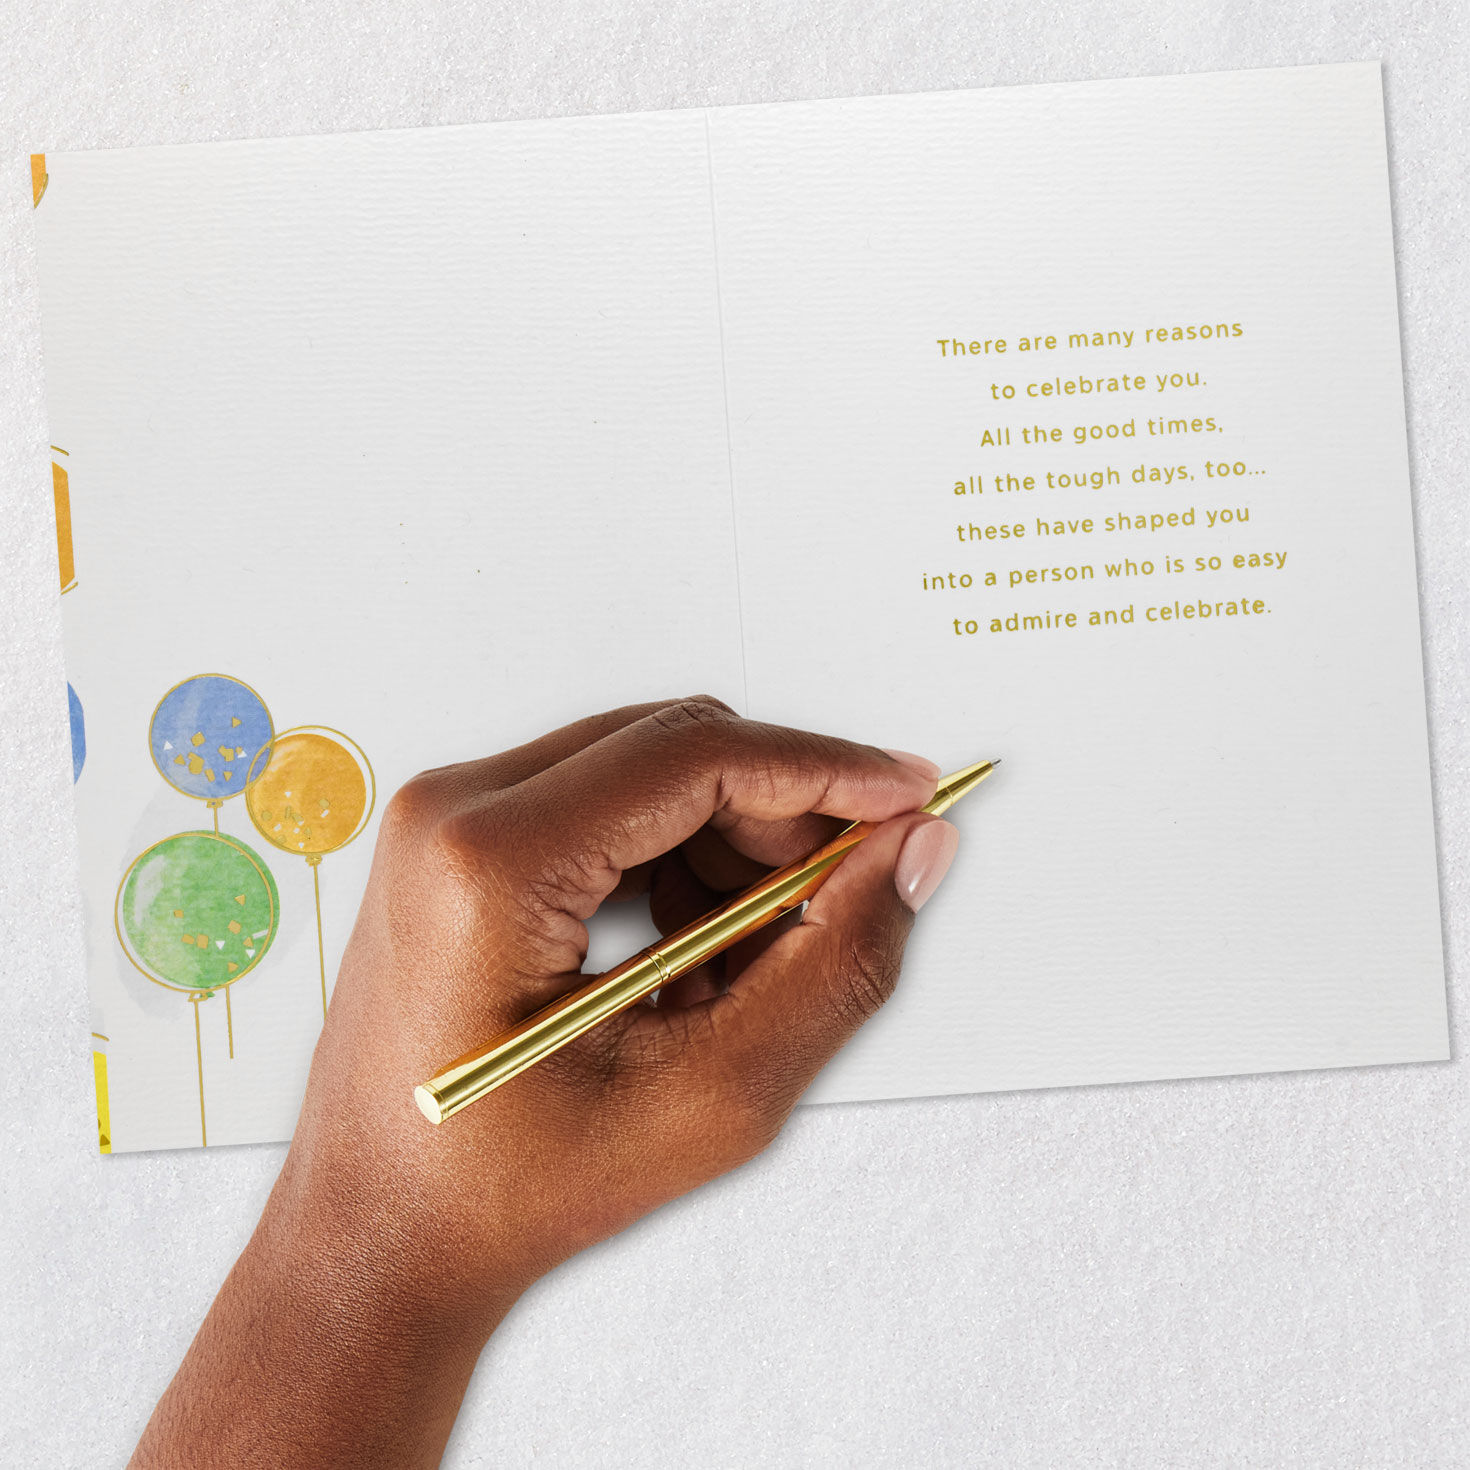 There are many reasons
to celebrate you.
All the good times,
all the tough days, too...
these have shaped you
into a person who is so easy
to admire and celebrate.